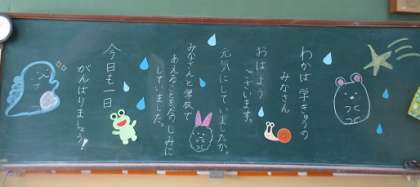 わかば学きゅうの
みなさん
おはよう
ございます。
元気にしていましたか。
みなさんと学校で
あえることをたのしみに
していました。
今日も一日
がんばりましょう！